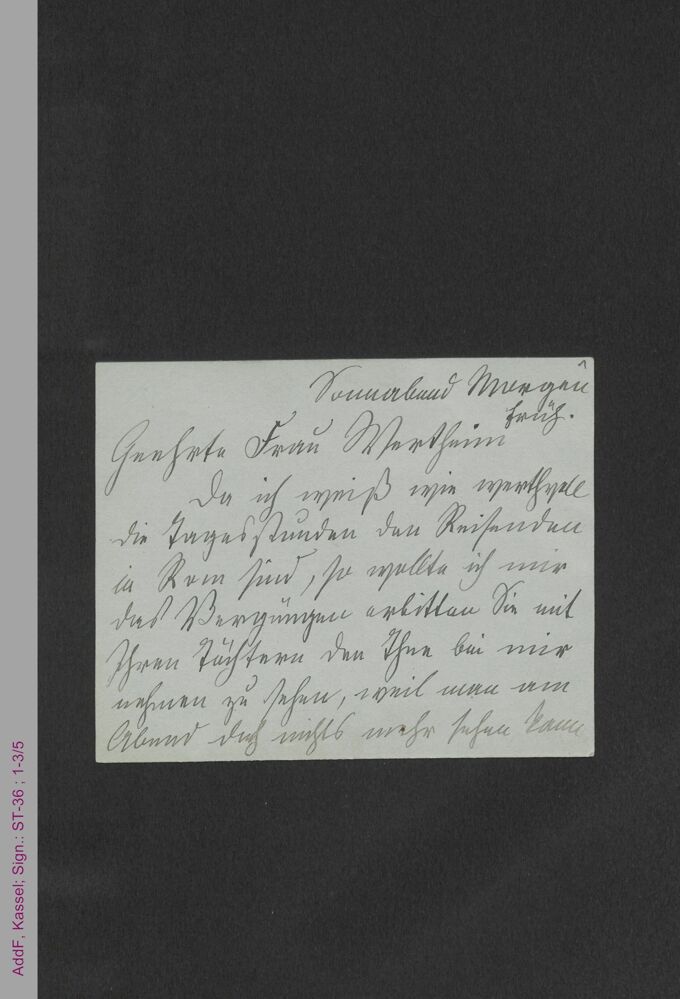 Sonnabend Morgen
früh.
Geehrte Frau Wertheim
Da ich weiß wie werthvoll
die Tagesstunden den Reisenden
in Rom sind, so wollte ich mir
das Vergüngen erbitten Sie mit
Ihren Töchtern den Thee bei mir
nehmen zu sehen, weil man am
Abend doch nichts mehr sehen kann
AddF, Kassel; Sign.: ST-36 ; 1-3/5